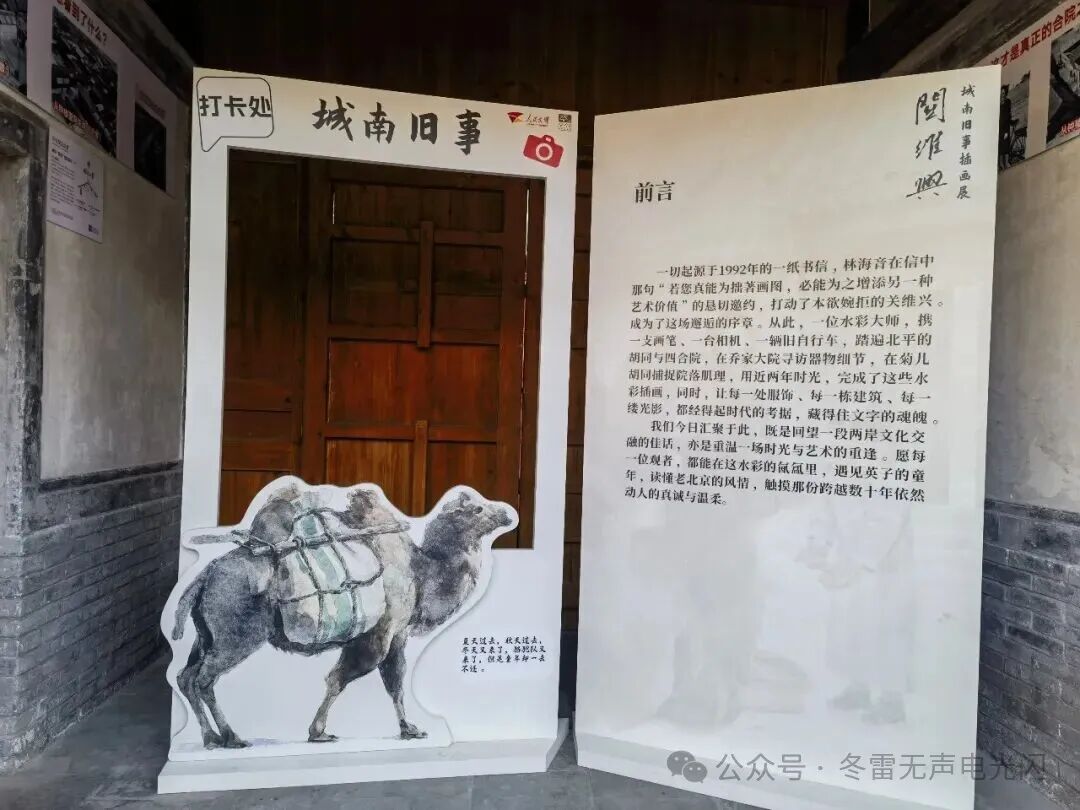 看到了什么？
才是真正的合院
打卡处
城南旧事
人民文博
城南旧事插画展
關維興
前言
一切起源于1992年的一纸书信，林海音在信中
那句“若您真能为拙著画图，必能为之增添另一种
艺术价值”的恳切邀约，打动了本欲婉拒的关维兴。
成为了这场邂逅的序章。从此，一位水彩大师，携
一支画笔、一台相机、一辆旧自行车，踏遍北平的
胡同与四合院，在乔家大院寻访器物细节，在菊儿
胡同捕捉院落肌理，用近两年时光，完成了这些水
彩插画，同时，让每一处服饰、每一栋建筑、每一
缕光影，都经得起时代的考据，藏得住文字的魂魄。
我们今日汇聚于此，既是回望一段两岸文化交
融的佳话，亦是重温一场时光与艺术的重逢。愿每
一位观者，都能在这水彩的氤氲里，遇见英子的童
年，读懂老北京的风情，触摸那份跨越数十年依然
动人的真诚与温柔。
夏天过去，秋天过去，
冬天又来了，骆驼队又
来了，但是童年却一去
不还。
公众号·冬雷无声电光闪